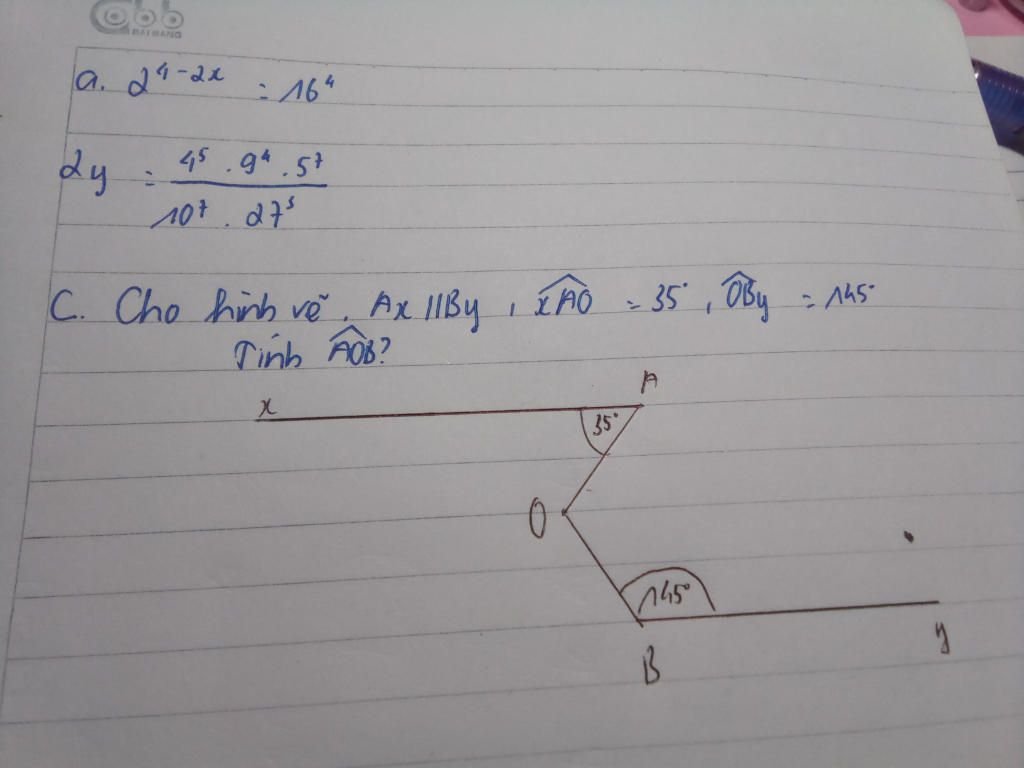 abb
BAI BANG
a. 2⁴⁻²ˣ = 16⁴
2y = 4⁵ . 9⁴ . 5⁷
10⁷ . 27³
C. Cho hình vẽ. Ax // By , xAO = 35° , OBy = 145°
Tính AOB?
x
A
35°
O
145°
B
y